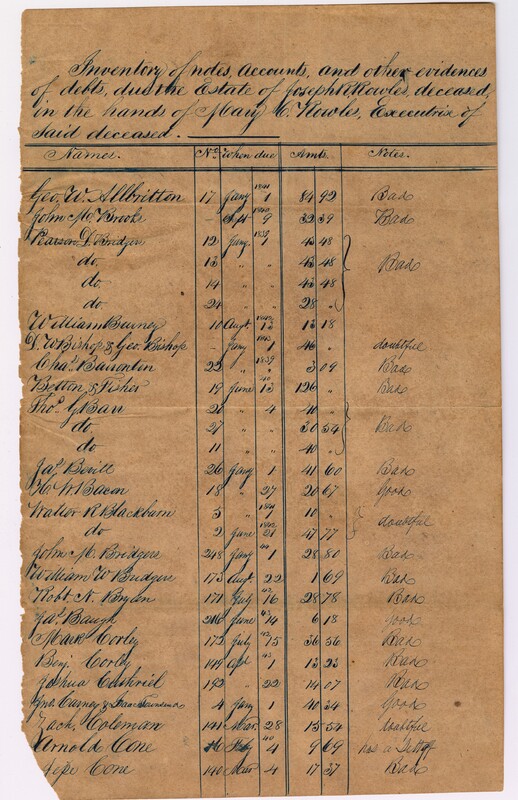 Inventory of notes, Accounts, and other evidences
of debts, due the Estate of Joseph R Rowles, deceased,
in the hands of Mary C. Rowles, Executrix of
Said deceased.
Names. No. When due Amts. Notes.
Geo. W. Allbritten 17 Jany 1841 1 84 92 Bad
John M. Brooks - Sept 9 32 39 Bad
Pearson D. Bridges 12 Jany 1839 1 43 48
do. 13 " " 43 48 Bad
do 14 " " 43 48
do 24 " " 28 "
William Burney 10 Augt. 13 13 18
D. W Bishop & Geo. Bishop - Jany 1 46 " doubtful
Chas. 22 " 1839 " 3 09 Bad
Betton & Fisher 19 June 40 13 126 " Bad
Thos. G Barr 21 " 4 40 "
do. 27 " " 30 54 Bad
do 11 " " 40 "
Jas. Bevill 26 Jany 1 41 60 Bad
H. W Bacon 18 " 27 20 67 Good
Walter R Blackburn 3 " 1 10 "
do 2 June 21 47 77 doubtful
John M. Bridges 248 Jany 1 28 80 Bad
William W Bridges 173 Augt 22 1 69 Bad
Robt N. Bryan 171 July 42 16 28 78 Bad
Jas. Baugh 246 June 43 14 6 18 good
Mark Corley 172 July 42 15 36 56 Bad
Benj. Corley 149 Apl 43 1 13 23 Bad
Joshua 192 " 22 14 07 Bad
Jno. Carney & Isaac Saunders 4 Jany 1 40 34 Good
Zach. Coleman 141 Mar. 28 15 54 doubtful
Arnold Cone Feby 40 4 9 69 has a Settoff
Cone 140 Mar 4 17 37 Bad